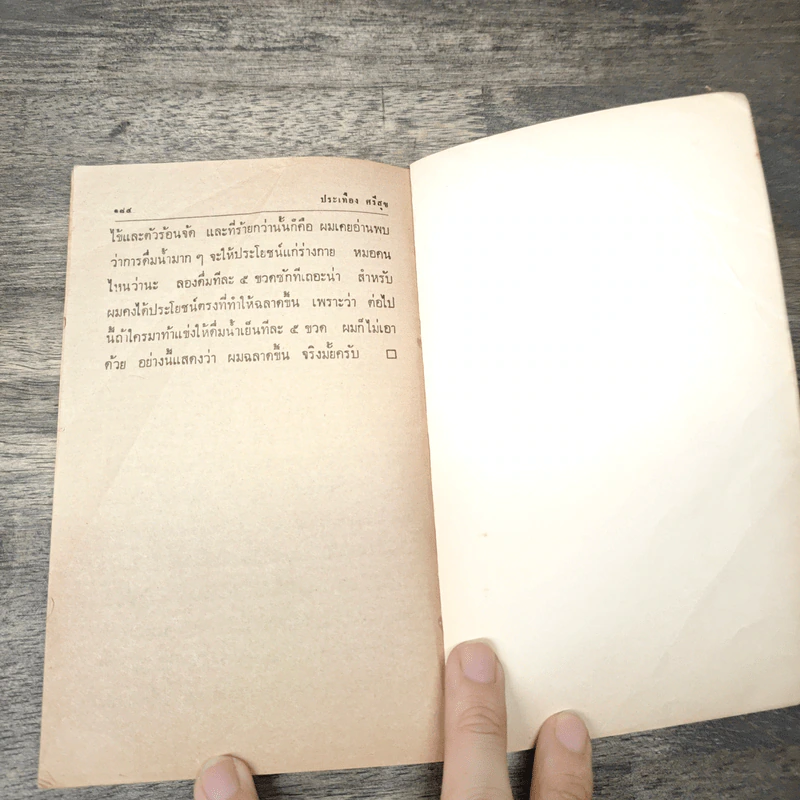 ๑๘๔ ประเทือง ศรีสุข
ไข้และตัวร้อนจัด และที่ร้ายกว่านั้นก็คือ ผมเคยอ่านพบ
ว่าการดื่มน้ำมาก ๆ จะให้ประโยชน์แก่ร่างกาย หมอคน
ไหนว่านะ ลองดื่มทีละ ๕ ขวดซักทีเถอะน่า สำหรับ
ผมคงได้ประโยชน์ตรงที่ทำให้ฉลาดขึ้น เพราะว่า ต่อไป
นี้ถ้าใครมาท้าแข่งให้ดื่มน้ำเย็นทีละ ๕ ขวด ผมก็ไม่เอา
ด้วย อย่างนี้แสดงว่า ผมฉลาดขึ้น จริงมั้ยครับ □